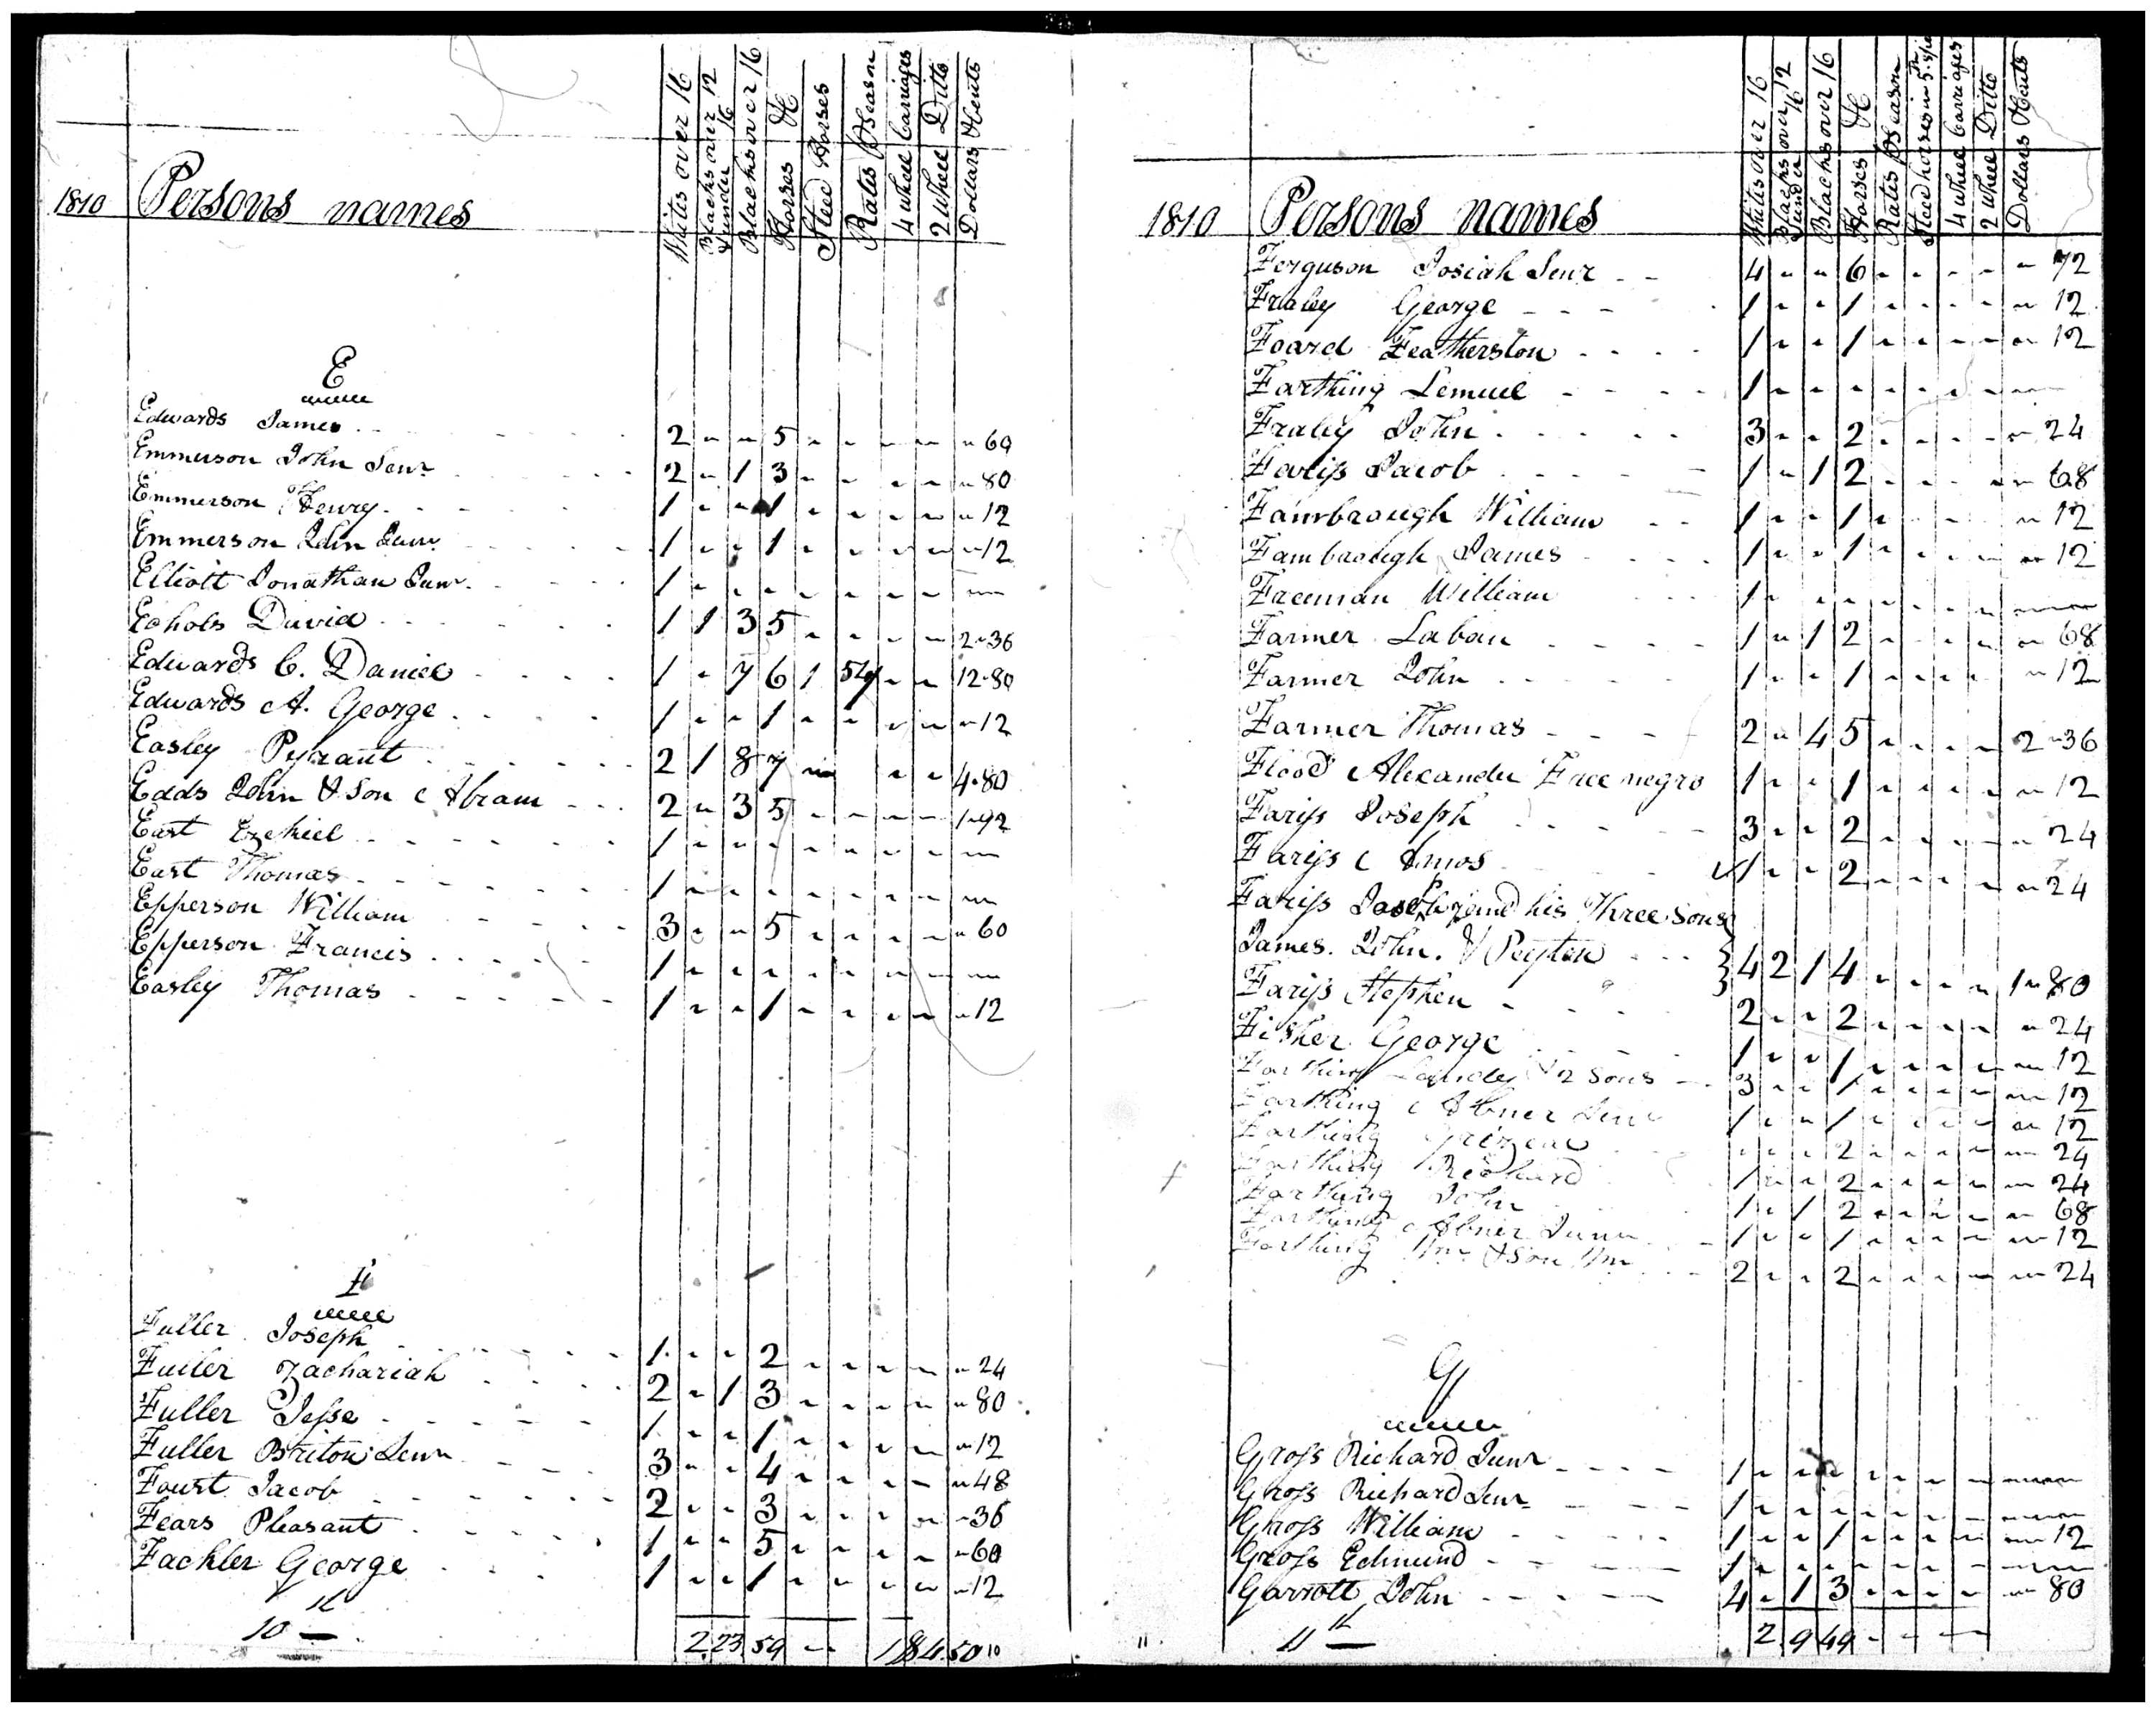 Whites over 16
Blacks over 12 & under 16
Blacks over 16
Horses &c
Stud Horses
Rates P Season
4 wheel Carriages
2 Wheel Ditto
Dollars & Cents
1810 Persons names
E
Edwards James 2 - - 5 - - - - - 60
Emmerson John Senr 2 - 1 3 - - - - - 80
Emmerson Henry 1 - - 1 - - - - - 12
Emmerson John Junr 1 - - 1 - - - - - 12
Elliott Jonathan Junr 1 - - - - - - - -
Echols David 1 1 3 5 - - - - 2-36
Edwards C. Daniel 1 - 7 6 1 54 - - 12-80
Edwards A. George 1 - - 1 - - - - - 12
Easley Pyrant 2 1 8 7 - - - 4-80
Eads John & Son Abram 2 - 3 5 - - - - 1-92
East Ezekiel 1 - - - - - - - -
East Thomas 1 - - - - - - - -
Epperson William 3 - - 5 - - - - - 60
Epperson Francis 1 - - - - - - - -
Easley Thomas 1 - - 1 - - - - - 12
F
Fuller Joseph 1 - - 2 - - - - - 24
Fuller Zachariah 2 - 1 3 - - - - - 80
Fuller Jesse 1 - - 1 - - - - - 12
Fuller Briton Senr 3 - - 4 - - - - - 48
Foust Jacob 2 - - 3 - - - - - 36
Fears Pleasant 1 - - 5 - - - - - 60
Fackler George 1 - - 1 - - - - - 12
10 2 23 59 -
Whites over 16
Blacks over 12 & under 16
Blacks over 16
Horses &c
Rates P Season
4 wheel Carriages
2 Wheel Ditto
Dollars & Cents
1810 Persons names
Ferguson Josiah Senr 4 - - 6 - - - - - 72
Fraley George 1 - - 1 - - - - - 12
Foard Featherston 1 - - 1 - - - - - 12
Farthing Lemuel 1 - - - - - - - -
Fraley John 3 - - 2 - - - - - 24
Fariss Jacob 1 - 1 2 - - - - - 68
Fambrough William 1 - - 1 - - - - - 12
Fambrough James 1 - - 1 - - - - - 12
Freeman William 1 - - - - - - - -
Farmer Laban 1 - 1 2 - - - - - 68
Farmer John 1 - - 1 - - - - - 12
Farmer Thomas 2 - 4 5 - - - - 2-36
Flood Alexander Free negro 1 - - 1 - - - - - 12
Fariss Joseph 3 - - 2 - - - - - 24
Fariss Amos 1 - - 2 - - - - - 24
Fariss and his Three Sons
James. John. & Peyton } 4 2 1 4 - - - - 1-80
Fariss Stephen 2 - - 2 - - - - - 24
Fisher George 1 - - 1 - - - - - 12
Farthing & 2 Sons 3 - - 1 - - - - - 12
Farthing Abner Senr 1 - - 1 - - - - - 12
Farthing - - - 2 - - - - - 24
Farthing Richard 1 - - 2 - - - - - 24
Farthing John 1 - 1 2 - - - - - 68
Farthing Abner Junr 1 - - 1 - - - - - 12
Farthing Wm & Son Wm 2 - - 2 - - - - - 24
G
Gross Richard Junr 1 - - - - - - - -
Gross Richard Senr 1 - - - - - - - -
Gross William 1 - - 1 - - - - - 12
Gross Edmund 1 - - - - - - - -
Garrott John 4 - 1 3 - - - - - 80
11 2 9 49 - - -